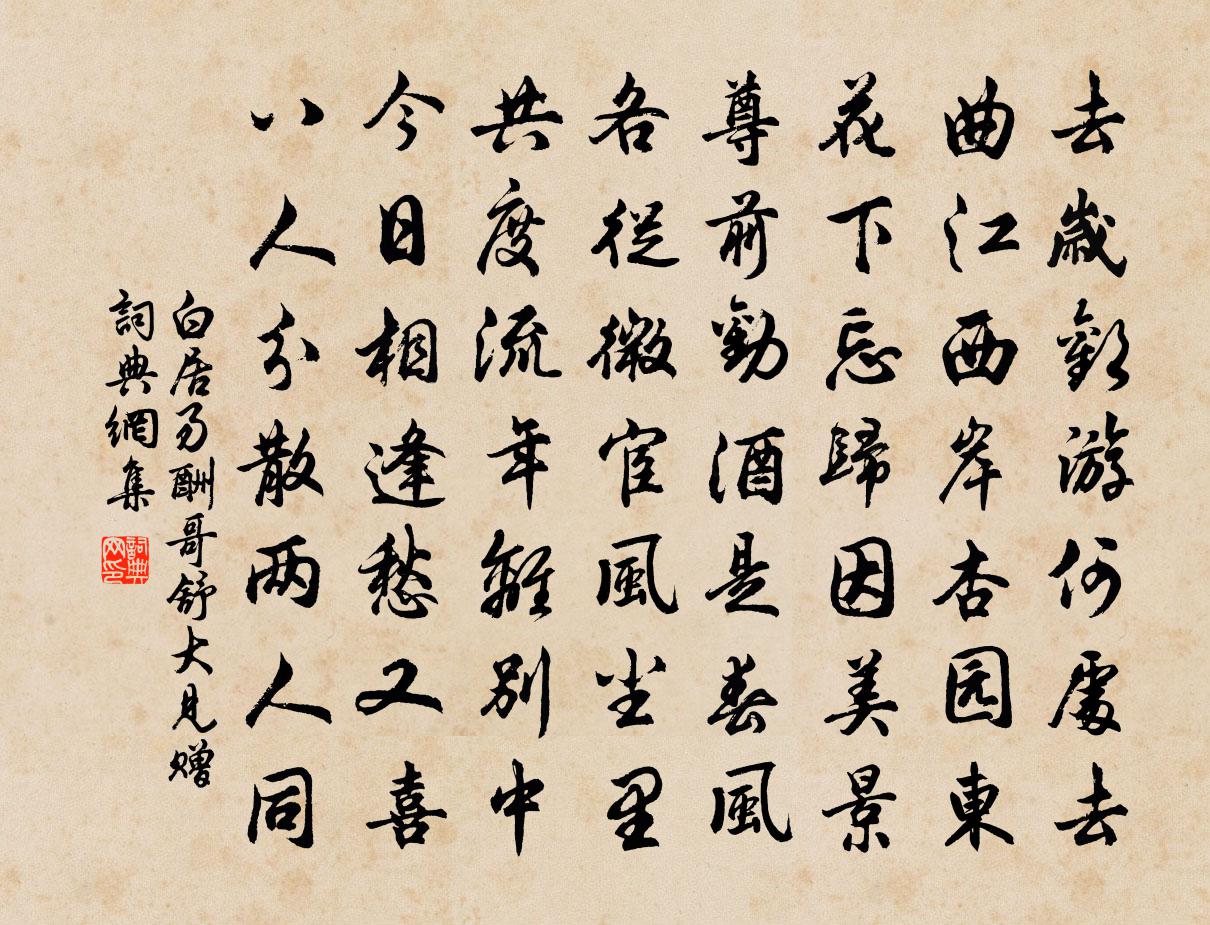 去歲歡游何處去
曲江西岸杏园東
花下忘歸因美景
尊前勸酒是春風
各從微宦風尘里
共度流年離別中
今日相逢愁又喜
八人分散两人同
白居易酬哥舒大見赠
詞典網集
詞典网印